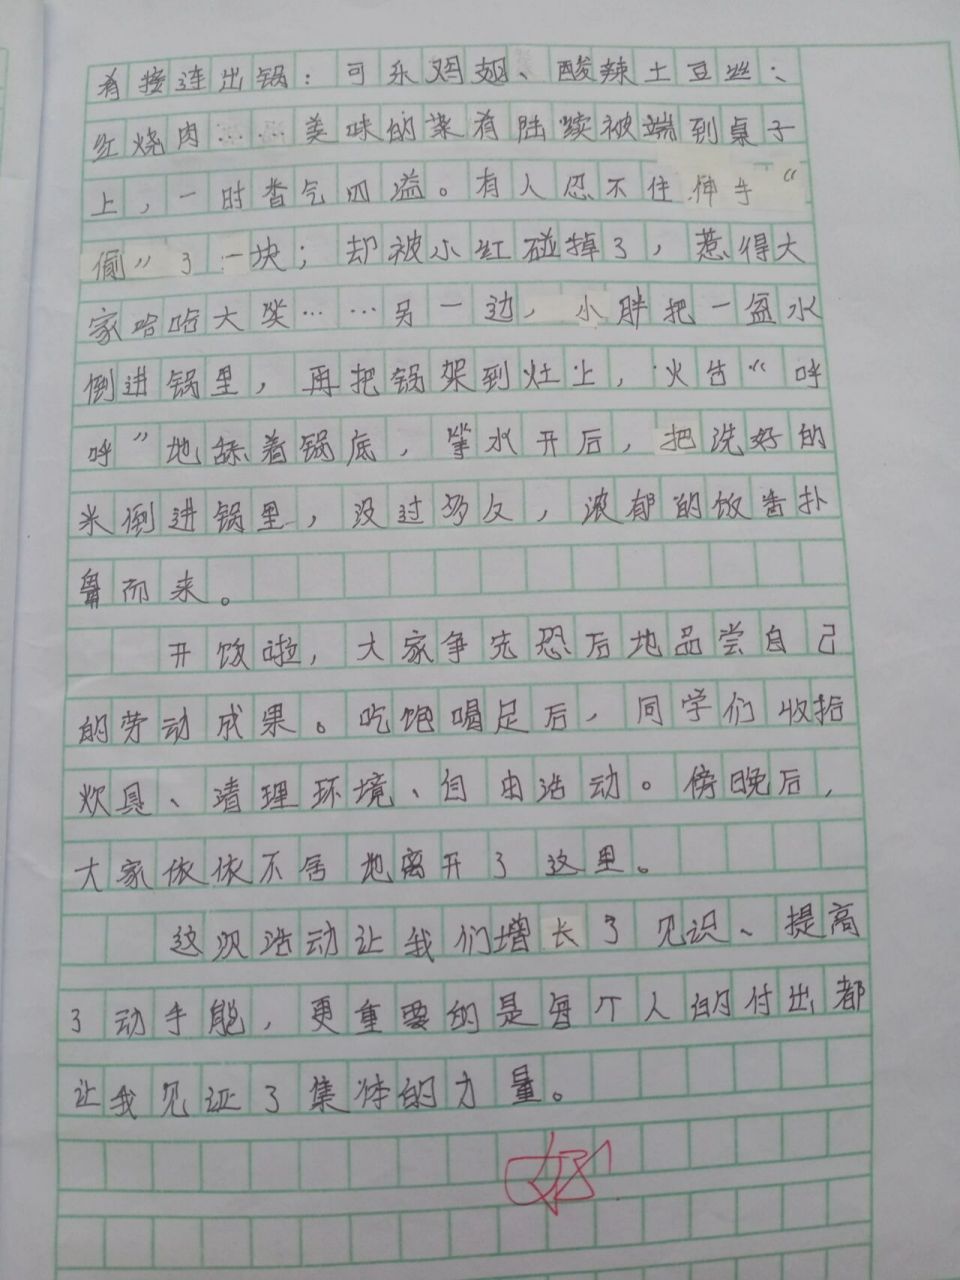 肴接连出锅：可乐鸡翅、酸辣土豆丝、
红烧肉……美味的菜肴陆续被端到桌子
上，一时香气四溢。有人忍不住伸手“
偷”了一块；却被小红碰掉了，惹得大
家哈哈大笑……另一边，小胖把一盆水
倒进锅里，再把锅架到灶上，火苗“呼
呼”地舔着锅底，等水开后，把洗好的
米倒进锅里，没过多久，浓郁的饭香扑
鼻而来。
开饭啦，大家争先恐后地品尝自己
的劳动成果。吃饱喝足后，同学们收拾
炊具、清理环境、自由活动。傍晚后，
大家依依不舍地离开了这里。
这次活动让我们增长了见识、提高
了动手能，更重要的是每个人的付出都
让我见证了集体的力量。
好